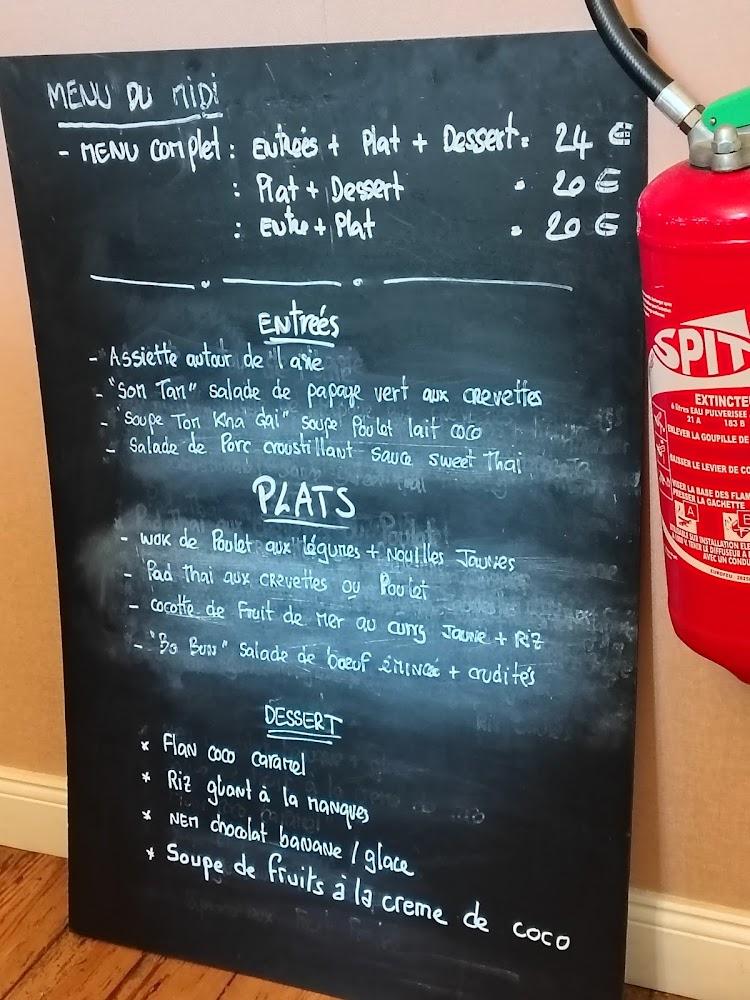 MENU DU MIDI
- MENU COMPLET : ENtreés + Plat + Dessert = 24 €
: Plat + Dessert = 20 €
: Entre + Plat = 20 €
ENtreés
- Assiette autour de l'asie
- "Som Tan" salade de papaye vert aux crevettes
- "Soupe Tom Kha Gai" soupe Poulet lait coco
- Salade de Porc croustillant sauce sweet Thai
PLATS
- wok de Poulet aux légumes + Nouilles Jaunes
- Pad Thai aux crevettes ou Poulet
- cocotte de Fruit de Mer au curry Jaune + Riz
- "Bo Bun" salade de boeuf émincé + crudités
DESSERT
* Flan coco caramel
* Riz gluant à la mangues
* NEM chocolat banane / glace
* Soupe de fruits à la creme de coco
SPIT
EXTINCTE
6 litres EAU PULVERISEE
21 A 183 B
ENLEVER LA GOUPILLE DE
BAISSER LE LEVIER DE CO
VISER LA BASE DES FLAM
PRESSER LA GACHETTE
A
SUR INSTALLATION ELE
TENIR LE DIFFUSEUR A
AVEC UN CONDU